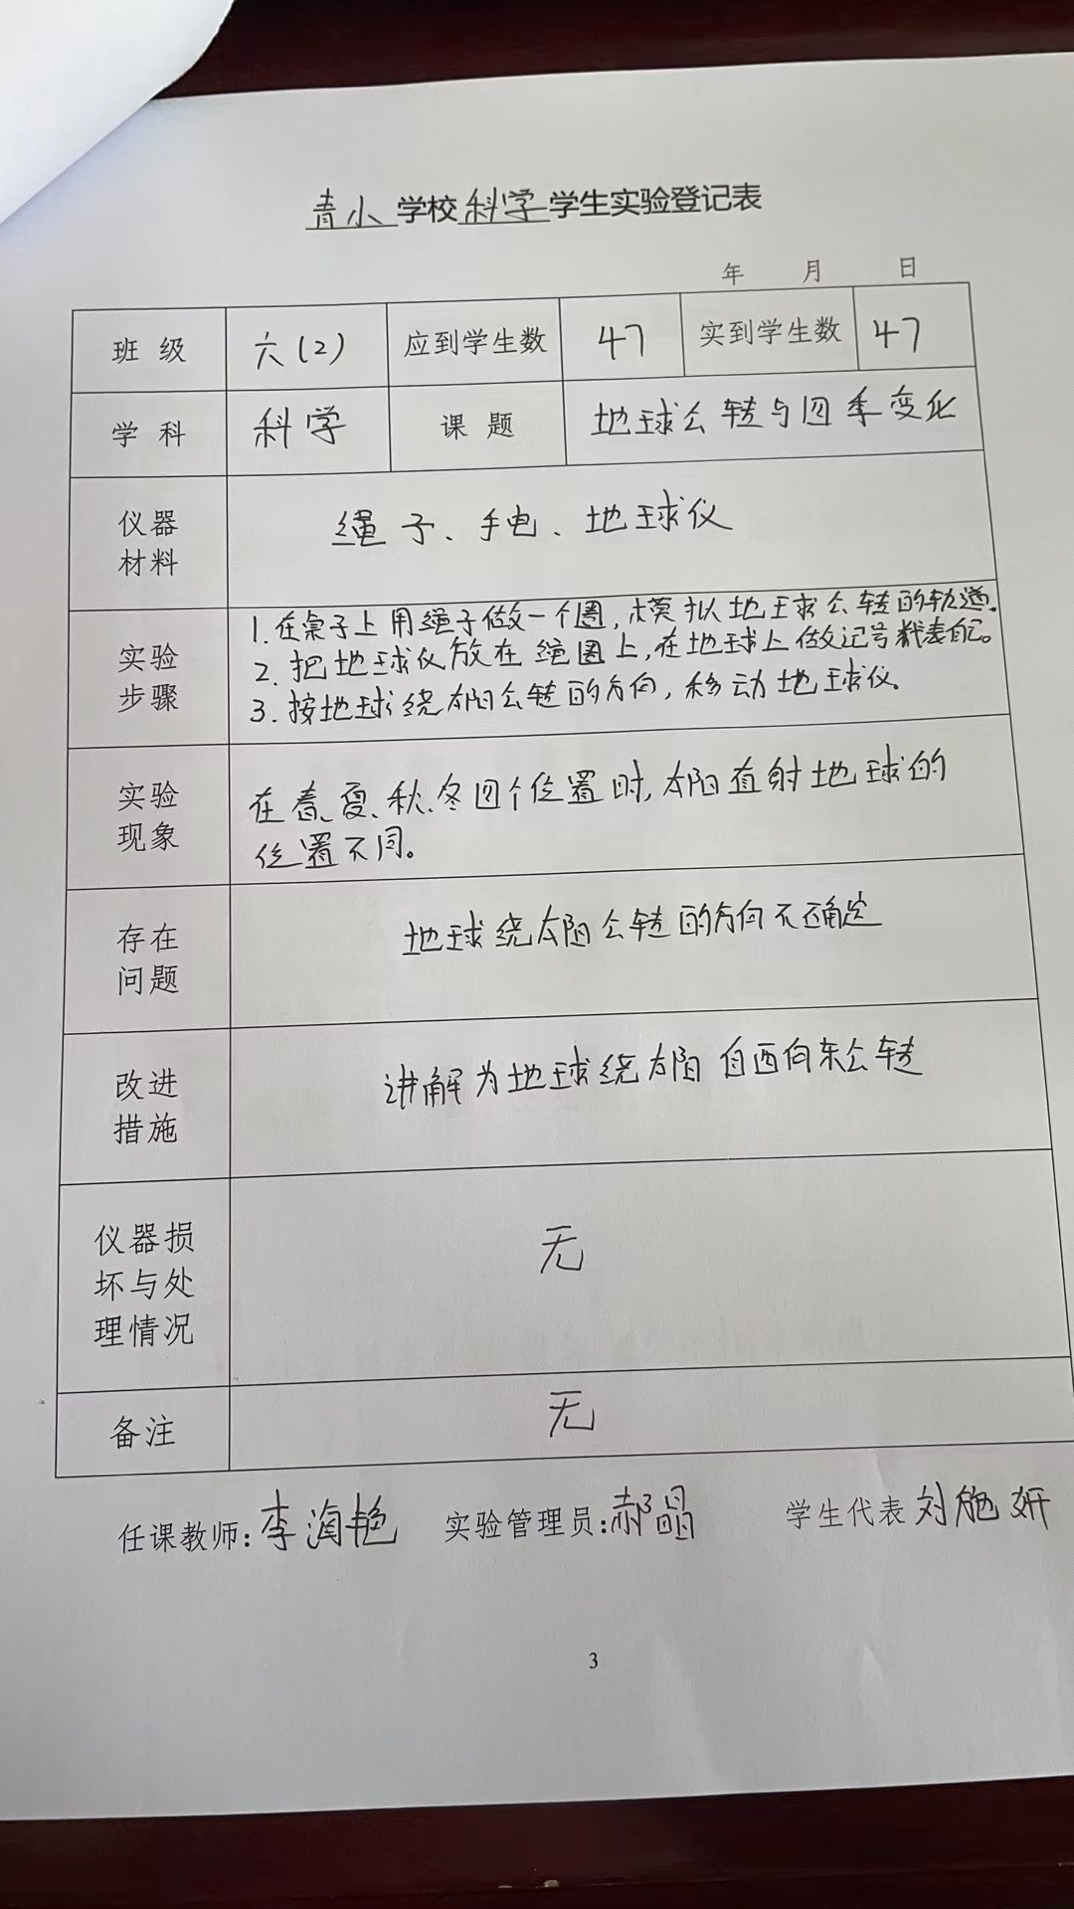 青小学校科学学生实验登记表
年 月 日
班级 六(2) 应到学生数 47 实到学生数 47
学科 科学 课题 地球公转与四季变化
仪器材料 绳子、手电、地球仪
实验步骤
1.在桌子上用绳子做一个圈,模拟地球公转的轨道。
2.把地球仪放在绳圈上,在地球上做记号代表自己。
3.按地球绕太阳公转的方向,移动地球仪。
实验现象
在春、夏、秋、冬四个位置时,太阳直射地球的
位置不同。
存在问题 地球绕太阳公转的方向不确定
改进措施 讲解为地球绕太阳自西向东公转
仪器损坏与处理情况 无
备注 无
任课教师:李海艳 实验管理员:郝晶 学生代表 刘妍
3